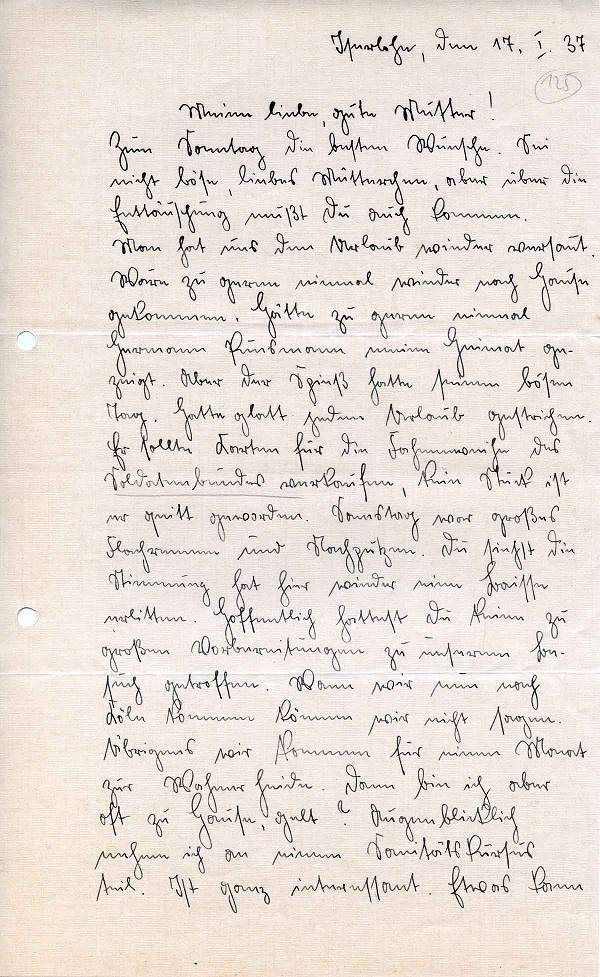 Iserlohn, den 17. I. 37
125
Meine liebe, gute Mutter!
Zum Sonntag die besten Wünsche. Sei
nicht böse, liebes Mütterchen, aber über die
Enttäuschung mußt Du auch kommen.
Man hat uns den Urlaub wieder versaut.
Wäre zu gerne einmal wieder nach Hause
gekommen. Hätte zu gerne einmal
Hermann meine Heimat ge-
zeigt. Aber der Spieß hatte seinen bösen
Tag. Hatte glatt jeden Urlaub gestrichen.
Er sollte Karten für die Fahnenweihe des
Soldatenbundes verkaufen, kein Stück ist
er quitt geworden. Samstag war großes
Flachrennen und Nachputzen. Du siehst die
Stimmung hat hier wieder eine Baisse
erlitten. Hoffentlich hattest Du keine zu
großen Vorbereitungen zu unserem Be-
such getroffen. Wann wir nun nach
Köln kommen können wir nicht sagen.
Übrigens wir kommen für einen Monat
zur Wahner Heide. Dann bin ich aber
oft zu Hause, gelt? Augenblicklich
nehme ich an einem Sanitätskursus
teil. Ist ganz interessant. Etwas kann